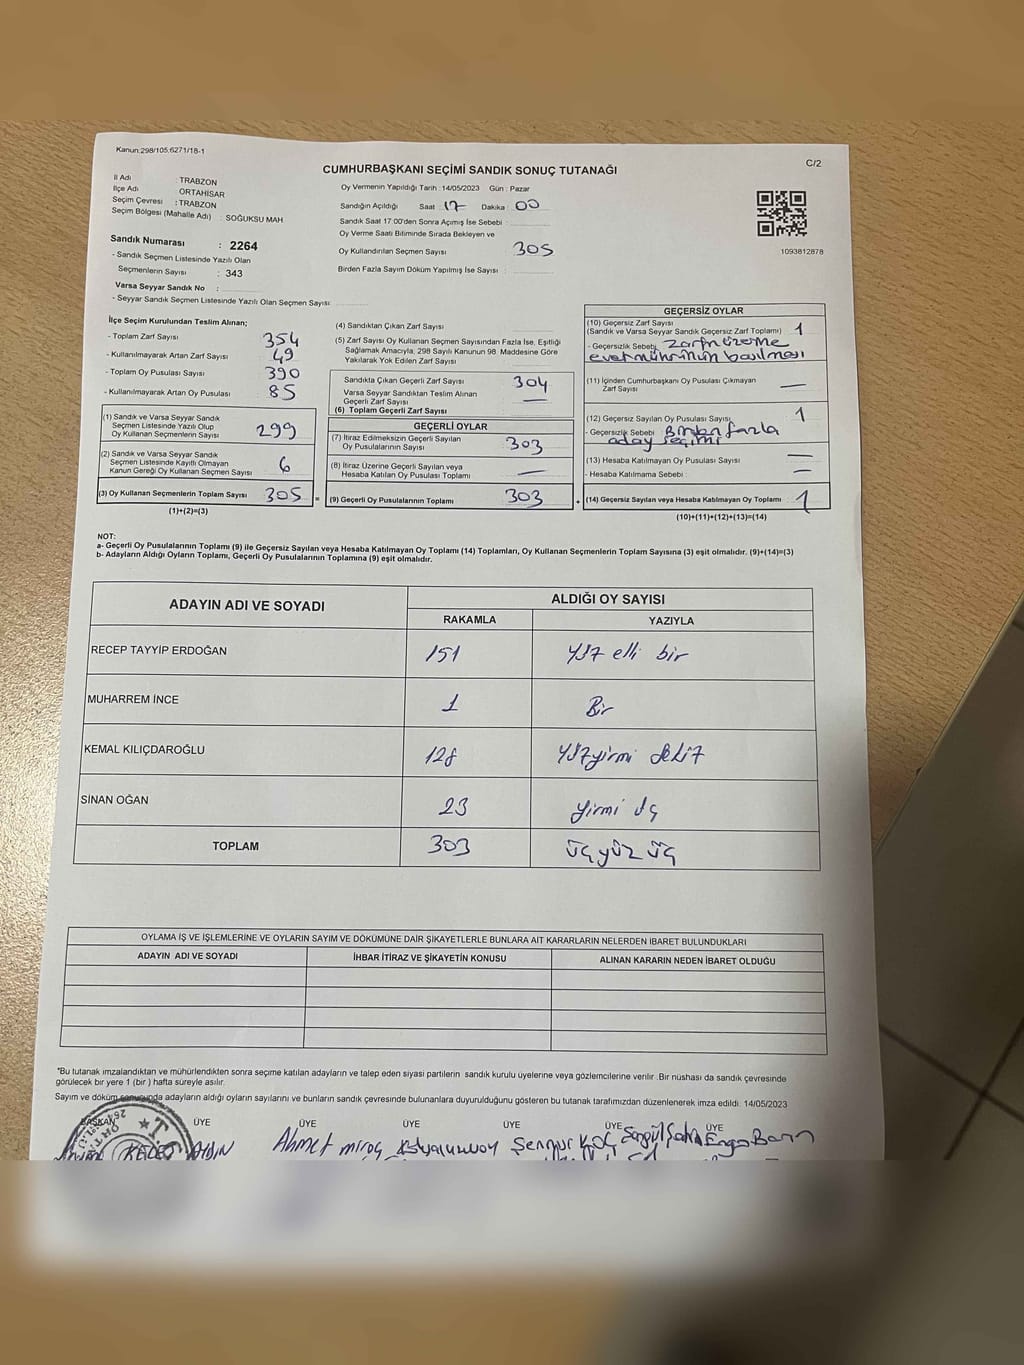 Kanun:298/105,6271/18-1
C/2
CUMHURBAŞKANI SEÇİMİ SANDIK SONUÇ TUTANAĞI
İl Adı : TRABZON
İlçe Adı : ORTAHİSAR
Seçim Çevresi : TRABZON
Seçim Bölgesi (Mahalle Adı) : SOĞUKSU MAH
Sandık Numarası : 2264
- Sandık Seçmen Listesinde Yazılı Olan
Seçmenlerin Sayısı : 343
Varsa Seyyar Sandık No :
- Seyyar Sandık Seçmen Listesinde Yazılı Olan Seçmen Sayısı:
Oy Vermenin Yapıldığı Tarih : 14/05/2023 Gün : Pazar
Sandığın Açıldığı Saat 17 Dakika 00
Sandık Saat 17:00'den Sonra Açımış İse Sebebi
Oy Verme Saati Bitiminde Sırada Bekleyen ve
Oy Kullandırılan Seçmen Sayısı 305
Birden Fazla Sayım Döküm Yapılmış İse Sayısı :
1093812878
İlçe Seçim Kurulundan Teslim Alınan;
- Toplam Zarf Sayısı 354
- Kullanılmayarak Artan Zarf Sayısı 49
- Toplam Oy Pusulası Sayısı 390
- Kullanılmayarak Artan Oy Pusulası 85
(1) Sandık ve Varsa Seyyar Sandık
Seçmen Listesinde Yazılı Olup
Oy Kullanan Seçmenlerin Sayısı 299
(2) Sandık ve Varsa Seyyar Sandık
Seçmen Listesinde Kayıtlı Olmayan
Kanun Gereği Oy Kullanan Seçmen Sayısı 6
(3) Oy Kullanan Seçmenlerin Toplam Sayısı 305 =
(1)+(2)=(3)
(4) Sandıktan Çıkan Zarf Sayısı
(5) Zarf Sayısı Oy Kullanan Seçmen Sayısından Fazla İse, Eşitliği
Sağlamak Amacıyla; 298 Sayılı Kanunun 98. Maddesine Göre
Yakılarak Yok Edilen Zarf Sayısı
Sandıkta Çıkan Geçerli Zarf Sayısı 304
Varsa Seyyar Sandıktan Teslim Alınan
Geçerli Zarf Sayısı —
(6) Toplam Geçerli Zarf Sayısı
GEÇERLİ OYLAR
(7) İtiraz Edilmeksizin Geçerli Sayılan
Oy Pusulalarının Sayısı 303
(8) İtiraz Üzerine Geçerli Sayılan veya
Hesaba Katılan Oy Pusulası Toplamı —
(9) Geçerli Oy Pusulalarının Toplamı 303 +
GEÇERSİZ OYLAR
(10) Geçersiz Zarf Sayısı
(Sandık ve Varsa Seyyar Sandık Geçersiz Zarf Toplamı) 1
- Geçersizlik Sebebi Zarfın üzerine
evet mührünün basılması
(11) İçinden Cumhurbaşkanı Oy Pusulası Çıkmayan
Zarf Sayısı —
(12) Geçersiz Sayılan Oy Pusulası Sayısı 1
- Geçersizlik Sebebi Birden fazla
aday seçimi
(13) Hesaba Katılmayan Oy Pusulası Sayısı —
- Hesaba Katılmama Sebebi —
(14) Geçersiz Sayılan veya Hesaba Katılmayan Oy Toplamı 1
(10)+(11)+(12)+(13)=(14)
NOT:
a- Geçerli Oy Pusulalarının Toplamı (9) ile Geçersiz Sayılan veya Hesaba Katılmayan Oy Toplamı (14) Toplamları, Oy Kullanan Seçmenlerin Toplam Sayısına (3) eşit olmalıdır. (9)+(14)=(3)
b- Adayların Aldığı Oyların Toplamı, Geçerli Oy Pusulalarının Toplamına (9) eşit olmalıdır.
ADAYIN ADI VE SOYADI
ALDIĞI OY SAYISI
RAKAMLA YAZIYLA
RECEP TAYYİP ERDOĞAN 151 yüz elli bir
MUHARREM İNCE 1 Bir
KEMAL KILIÇDAROĞLU 128 yüzyirmi sekiz
SİNAN OĞAN 23 yirmi üç
TOPLAM 303 üçyüz üç
OYLAMA İŞ VE İŞLEMLERİNE VE OYLARIN SAYIM VE DÖKÜMÜNE DAİR ŞİKAYETLERLE BUNLARA AİT KARARLARIN NELERDEN İBARET BULUNDUKLARI
ADAYIN ADI VE SOYADI İHBAR İTİRAZ VE ŞİKAYETİN KONUSU ALINAN KARARIN NEDEN İBARET OLDUĞU
"Bu tutanak imzalandıktan ve mühürlendikten sonra seçime katılan adayların ve talep eden siyasi partilerin sandık kurulu üyelerine veya gözlemcilerine verilir. Bir nüshası da sandık çevresinde
görülecek bir yere 1 (bir ) hafta süreyle asılır.
Sayım ve döküm sonucunda adayların aldığı oyların sayılarını ve bunların sandık çevresinde bulunanlara duyurulduğunu gösteren bu tutanak tarafımızdan düzenlenerek imza edildi. 14/05/2023
BAŞKAN ÜYE ÜYE ÜYE ÜYE ÜYE ÜYE
Ahmet Şennur KOÇ